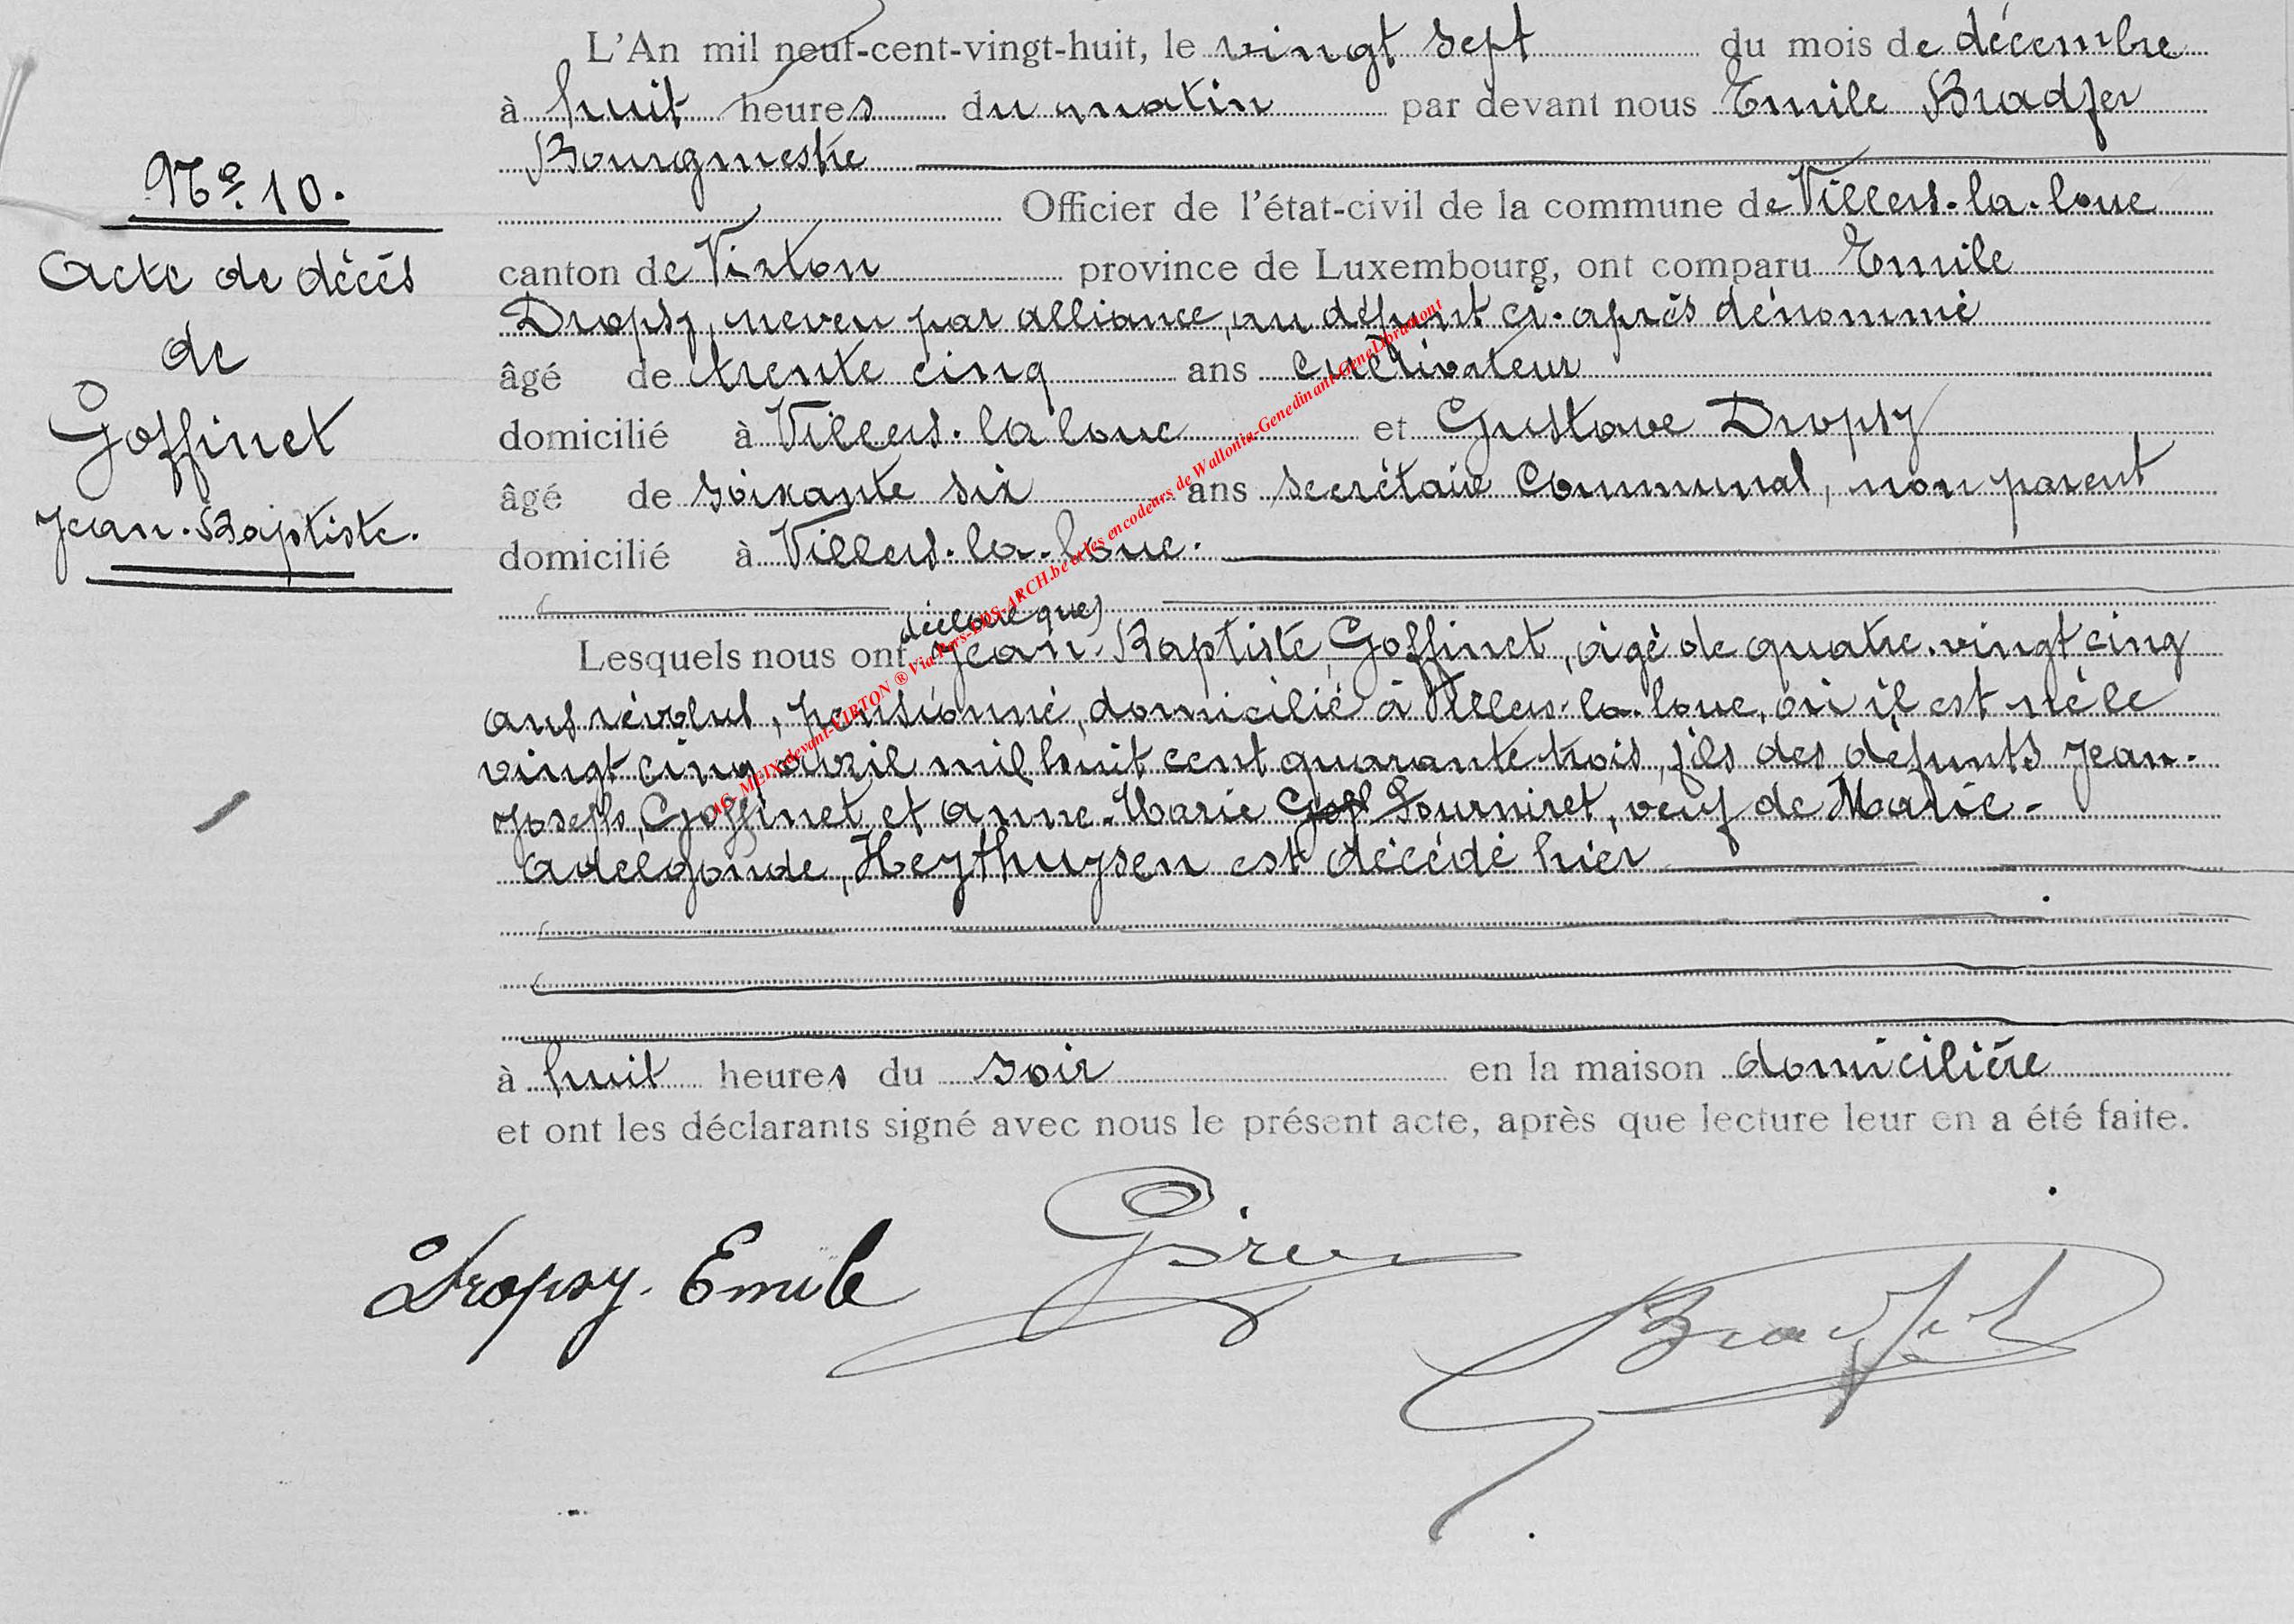 L'An mil neuf-cent-vingt-huit, le vingt sept du mois de décembre
à huit heures du matin par devant nous Emile Bradfer
Bourgmestre
Nº 10.
Officier de l'état-civil de la commune de Villers-la-loue
Acte de décès
canton de Virton province de Luxembourg, ont comparu Emile
Dropsy, neveu par alliance, au défunt ci-après dénommé
de
âgé de trente cinq ans cultivateur
Goffinet
domicilié à Villers-la loue et Gustave Dropsy
âgé de soixante six ans secrétaire communal, non parent
Jean-Baptiste.
domicilié à Villers-la-loue.
déclaré que)
Lesquels nous ont Jean-Baptiste, Goffinet, âgé de quatre-vingt cinq
ans révolus, pensionné, domicilié à Villers-la-loue, où il est né le
vingt cinq avril mil huit cent quarante trois, fils des défunts Jean-
Joseph, Goffinet et Anne-Marie Gof Fourniret, veuf de Marie-
Adélgonde, Heythuysen est décédé hier
à huit heures du soir en la maison domicilière
et ont les déclarants signé avec nous le présent acte, après que lecture leur en a été faite.
Dropsy. Emile
Bradfer
MEIX-devant-VIRTON ® Via Pers-LDS-ARCH.be et les encodeurs de Wallonia-Genedinant-GeneLibramont